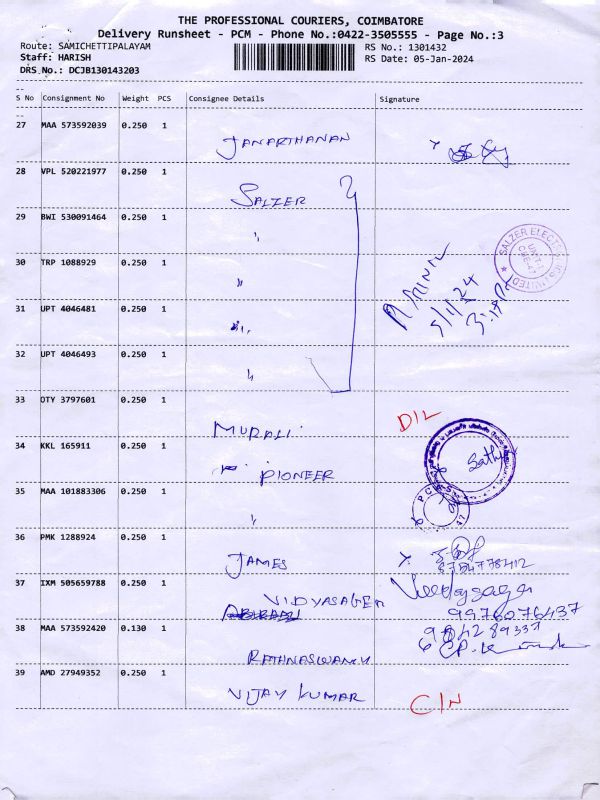 THE PROFESSIONAL COURIERS, COIMBATORE
Delivery Runsheet - PCM - Phone No.:0422-3505555 - Page No.:3
Route: SAMICHETTIPALAYAM RS No.: 1301432
Staff: HARISH RS Date: 05-Jan-2024
DRS No.: DCJB130143203
--
S No Consignment No Weight PCS Consignee Details Signature
--
27 MAA 573592039 0.250 1 JANARTHANAN
28 VPL 520221977 0.250 1 SALZER
29 BWI 530091464 0.250 1 "
SALZER ELECT
30 TRP 1088929 0.250 1 "
5/1/24
31 UPT 4046481 0.250 1 "
32 UPT 4046493 0.250 1 "
33 OTY 3797601 0.250 1 MURALI D/L
34 KKL 165911 0.250 1 PIONEER
35 MAA 101883306 0.250 1 "
36 PMK 1288924 0.250 1 JAMES
37 IXM 505659788 0.250 1 VIDYASAGER
9976076437
38 MAA 573592420 0.130 1 RATHNASWAMY
39 AMD 27949352 0.250 1 VIJAY KUMAR C/N